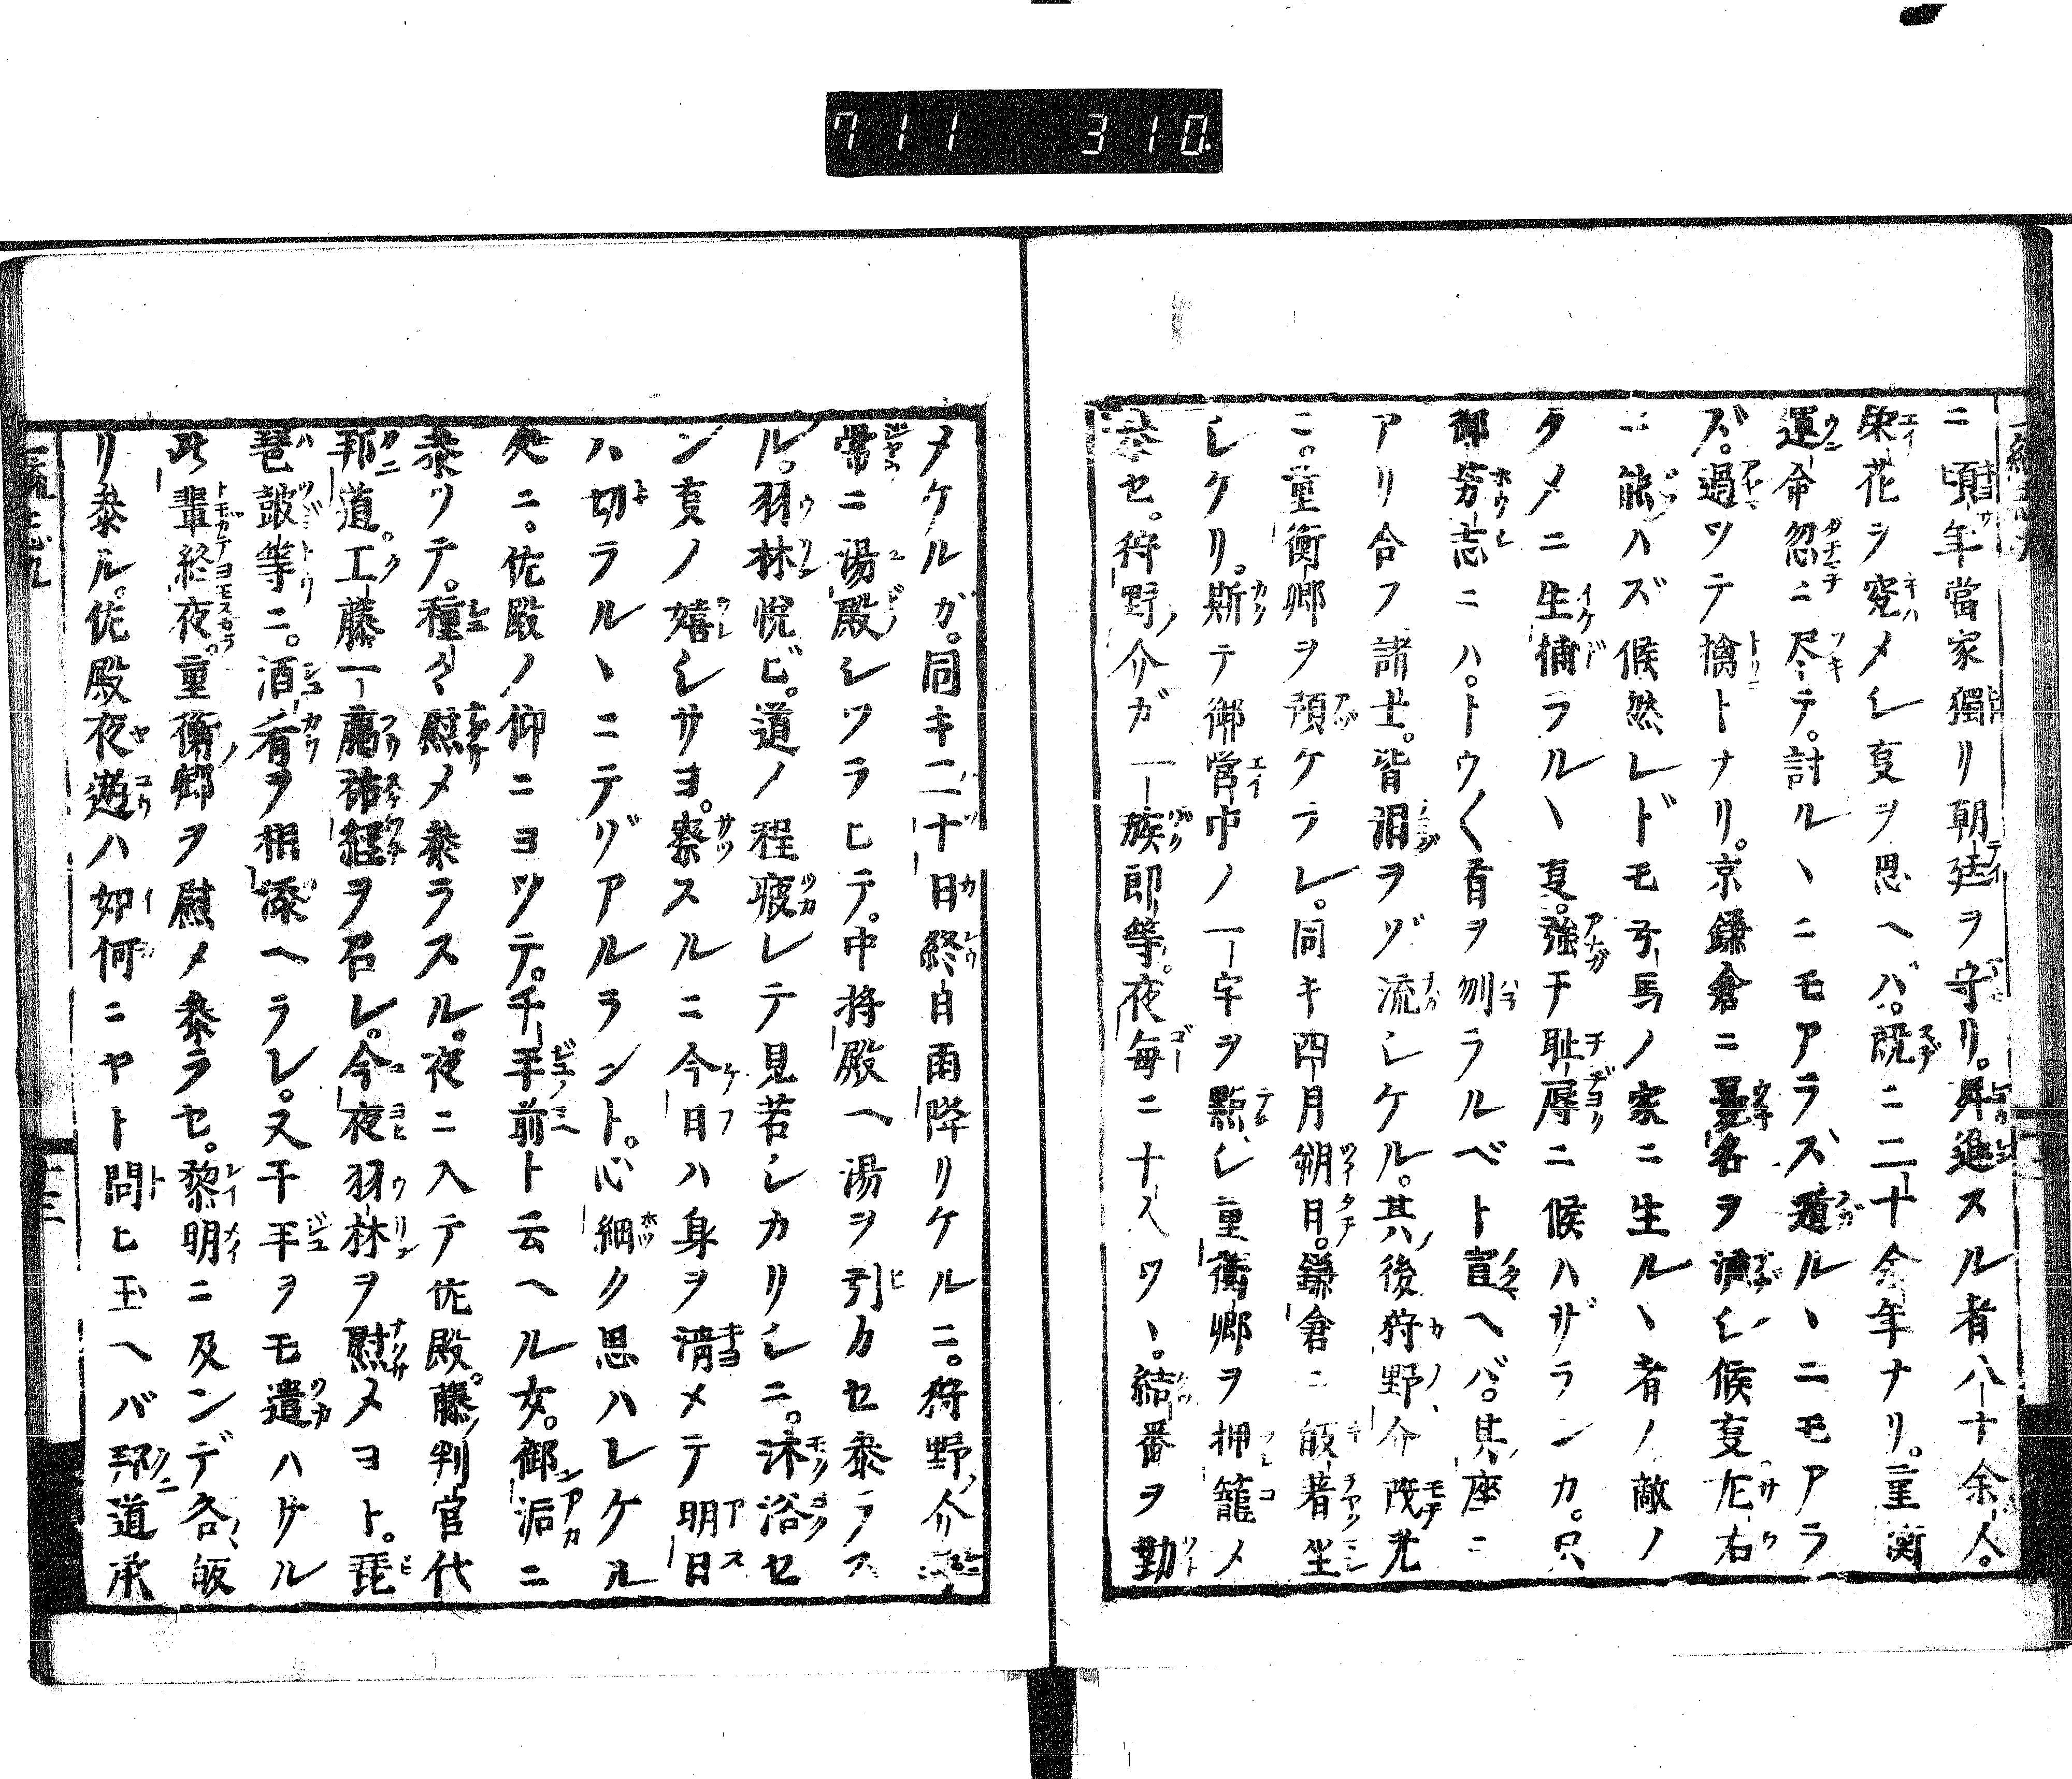 711 310
ニ頃年當家獨リ朝廷ヲ守リ。昇進スル者八十余人。
栄花ヲ究メシ叓ヲ思ヘバ。既ニ二十余年ナリ。重衡
運命忽ニ尽テ。討ルヽニモアラズ遁ルヽニモアラ
ズ。過ツテ擒トナリ。京鎌倉ニ憂名ヲ流シ候叓左右
ニ能ハズ候然レドモ弓馬ノ家ニ生ルヽ者ノ敵ノ
タメニ生捕ラルヽ叓。強チ耻辱ニ候ハザランカ。只
御芳志ニハ。トウ〱首ヲ刎ラルベト宣ヘバ。其座ニ
アリ合フ諸士。皆泪ヲゾ流シケル。其後狩野介茂光
ニ。重衡卿ヲ預ケラレ。同キ四月朔日。鎌倉ニ皈著坐
シケリ。斯テ御営中ノ一宇ヲ點ジ重衡卿ヲ押籠メ
泰セ。狩野介ガ一族郎等。夜毎ニ十人ワヽ。結番ヲ勤
メケルガ。同キ二十日終日雨降リケルニ。狩野介
常ニ湯殿シツラヒテ。中将殿ヘ湯ヲ引カセ泰ラス
ル。羽林悦ビ。道ノ程疲レテ見苦シカリシニ。沐浴セ
ン叓ノ嬉シサヨ。察スルニ今日ハ身ヲ清メテ明日
ハ切ラルヽニテゾアルラント。心細ク思ハレケル
処ニ。佐殿ノ仰ニヨツテ。千平前ト云ヘル女。御垢ニ
泰ツテ。種々慰メ泰ラスル。夜ニ入テ佐殿。藤判官代
邦道。工藤一﨟祐経ヲ召レ。今夜羽林ヲ慰メヨト。琵
琶皷等ニ。酒肴ヲ相添ヘラレ。又千平ヲモ遣ハサル
此輩終夜。重衡卿ヲ慰メ泰ラセ。黎明ニ及ンデ各皈
リ泰ル。佐殿夜遊ハ如何ニヤト問ヒ玉ヘバ邦道承